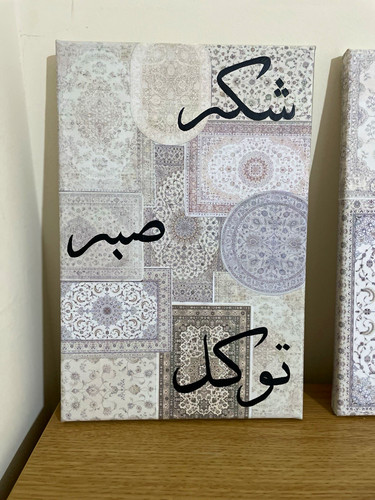 شكر
صبر
توكل